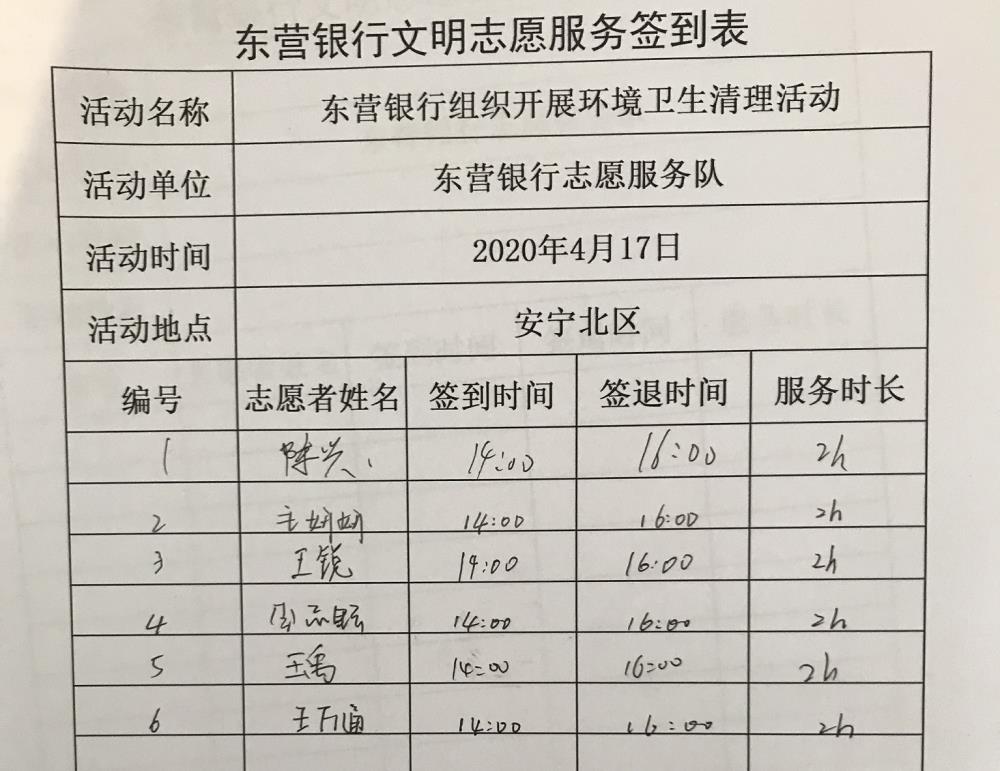 东营银行文明志愿服务签到表
活动名称 东营银行组织开展环境卫生清理活动
活动单位 东营银行志愿服务队
活动时间 2020年4月17日
活动地点 安宁北区
编号 志愿者姓名 签到时间 签退时间 服务时长
1 陈兴 14:00 16:00 2h
2 14:00 16:00 2h
3 王锐 14:00 16:00 2h
4 14:00 16:00 2h
5 王禹 14:00 16:00 2h
6 14:00 16:00 2h